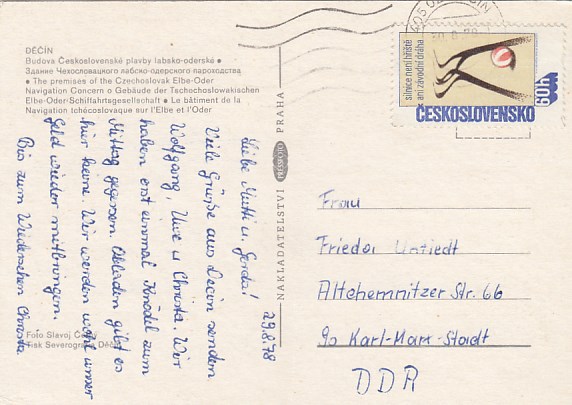 DĚČÍN
Budova Československé plavby labsko-oderské ●
Здание Чехословацкого лабско-одерского пароходства
● The premises of the Czechoslovak Elbe-Oder
Navigation Concern ○ Gebäude der Tschechoslowakischen
Elbe-Oder-Schiffahrtsgesellschaft ● Le bâtiment de la
Navigation tchécoslovaque sur l'Elbe et l'Oder
29.8.78
Liebe Mutti u. Gerda!
Viele Grüße aus Decin senden
Wolfgang, Uwe u Christa. Wir
haben erst einmal Knödel zum
Mittag gegessen. Obladen gibt es
hier keine. Wir werden wohl unser
Geld wieder mitbringen.
Bis zum Wiedersehen Christa
Foto Slavoj
Tisk Severografia Děčín
NAKLADATELSTVÍ PRESSFOTO PRAHA
silnice není hřiště
ani závodní dráha
60h
ČESKOSLOVENSKO
405 02
Frau
Frieda Untiedt
Altchemnitzer Str. 66
90 Karl-Marx-Stadt
DDR